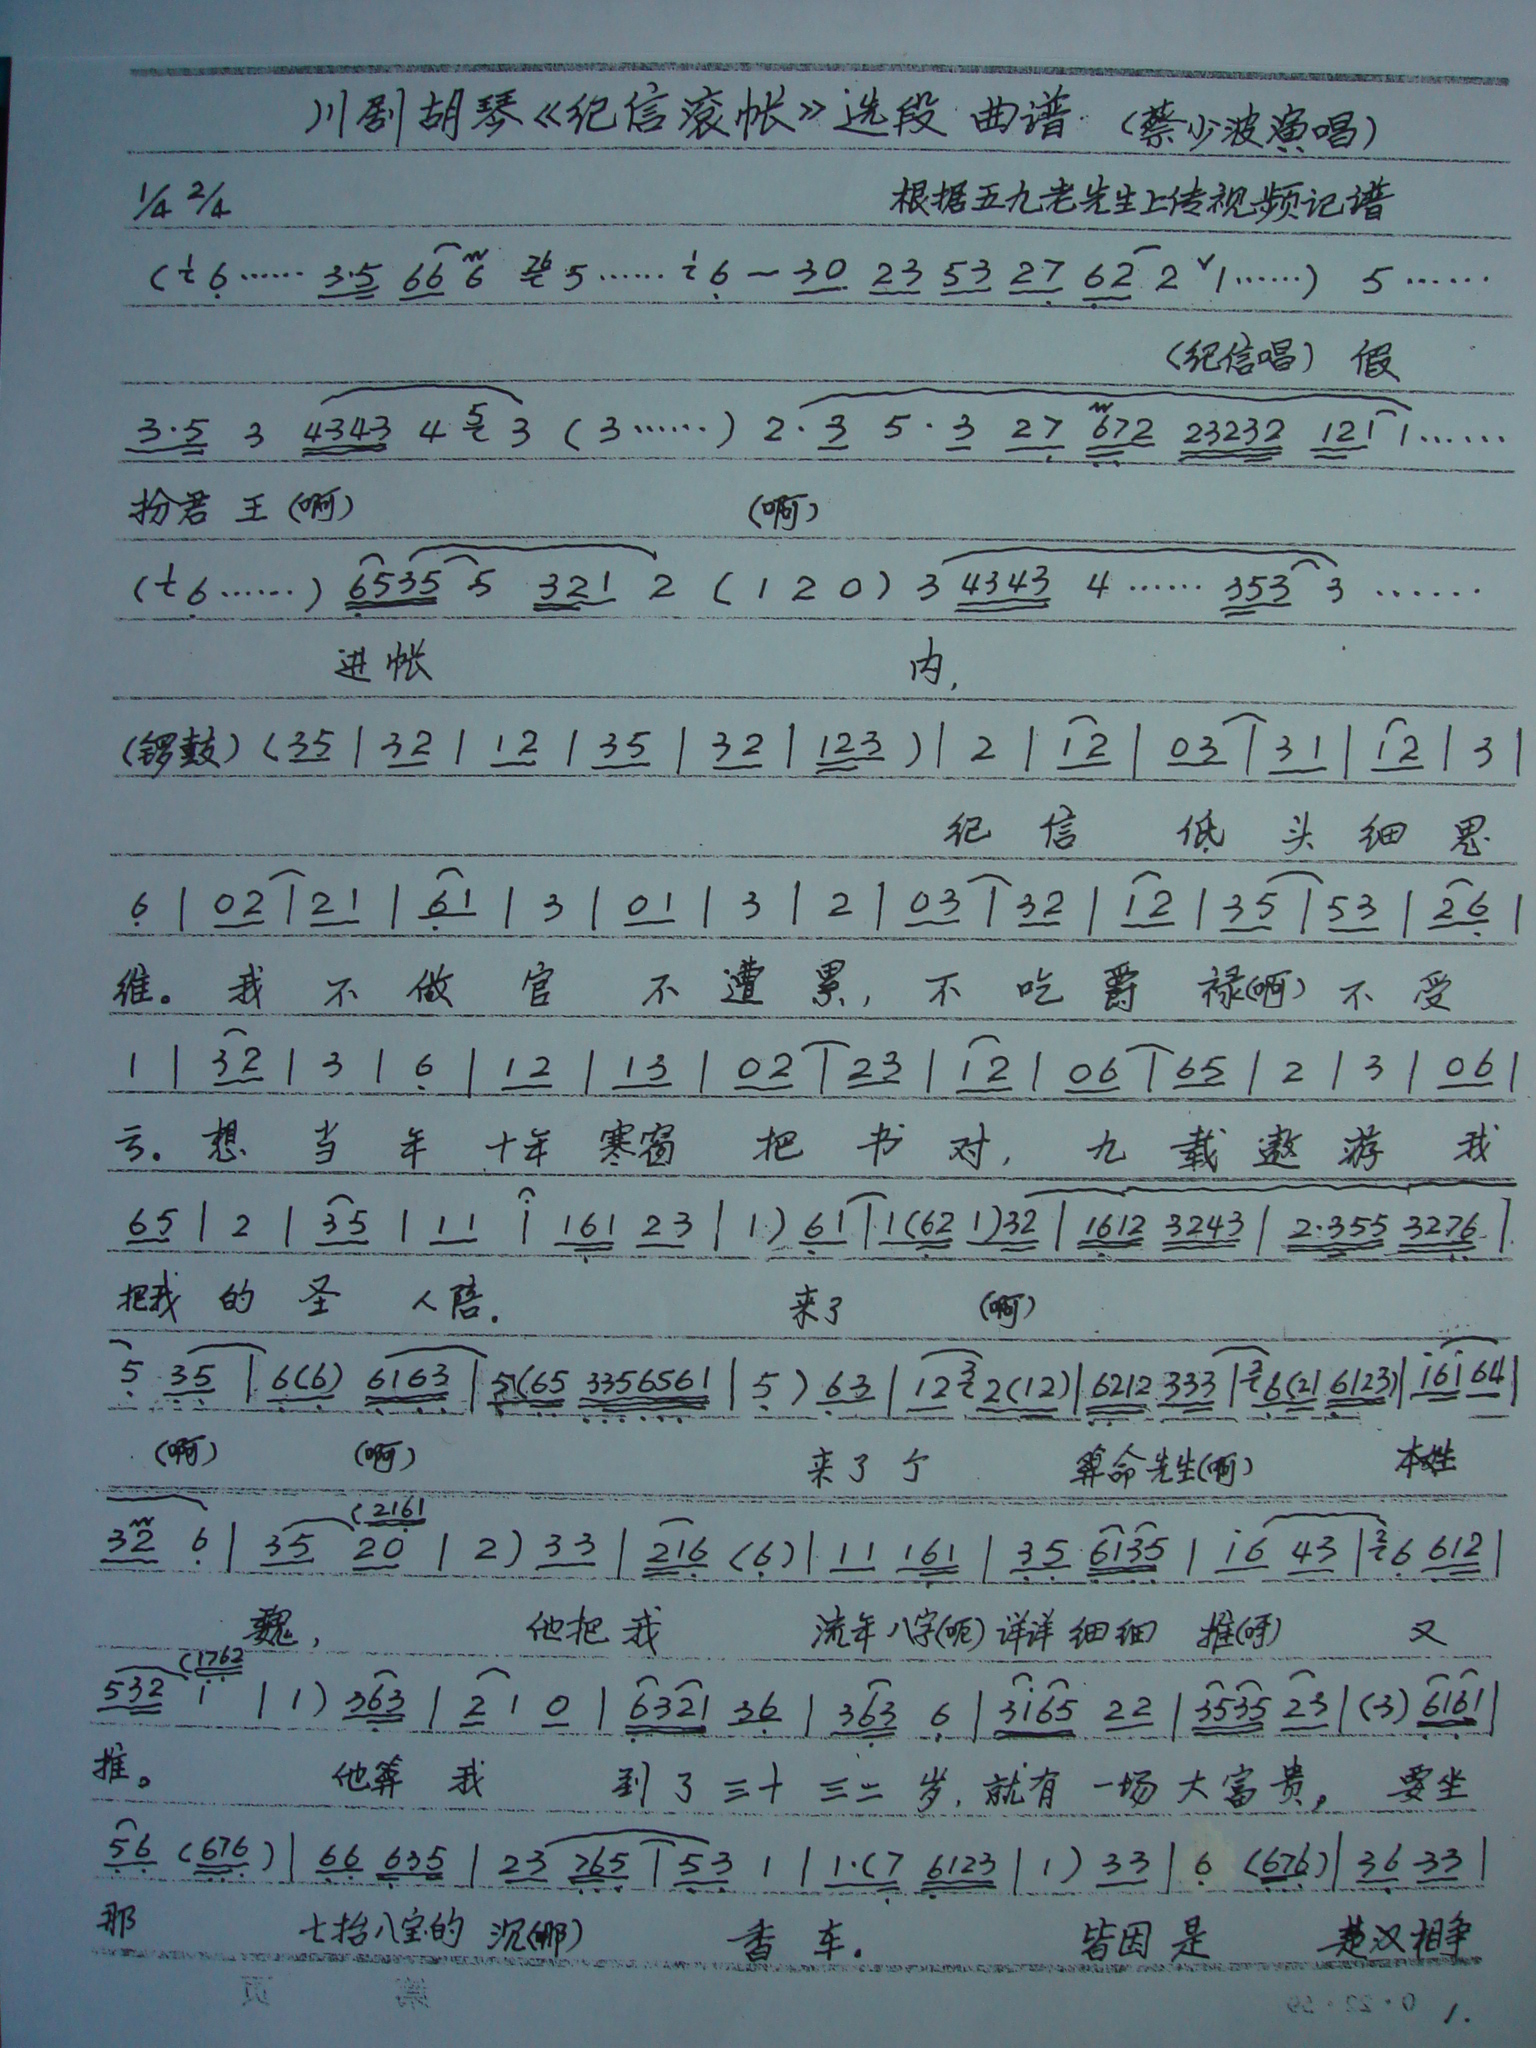 川剧胡琴《纪信滚帐》选段 曲谱 (蔡少波演唱)
1/4 2/4 根据五九老先生上传视频记谱
(i 6…… 3·5 66 6 76 5…… i 6 — 30 23 53 27 62 2 ˅1……) 5……
(纪信唱) 假
3·5 3 4343 4 5 3 (3……) 2·3 5·3 27 672 23232 121 1……
扮君 王 (啊) (啊)
(i 6……) 6535 5 321 2 (1 2 0) 3 4343 4…… 353 3……
进帐 内,
(锣鼓) (35 | 32 | 12 | 35 | 32 | 123) | 2 | 12 | 03 | 31 | 12 | 3 |
纪 信 低 头 细 思
6 | 02 | 21 | 61 | 3 | 01 | 3 | 2 | 03 | 32 | 12 | 35 | 53 | 26 |
维。我 不 做 官 不 遭 累, 不 吃 爵 禄(啊) 不 受
1 | 32 | 3 | 6 | 12 | 13 | 02 | 23 | 12 | 06 | 65 | 2 | 3 | 06 |
亏. 想 当 年 十年 寒窗 把 书 对, 九 载 遨 游 我
65 | 2 | 35 | 11 i 161 23 | 1) 61 | 1(62 1)32 | 1612 3243 | 2·355 3276 |
把我 的 圣 人陪. 来了 (啊)
5 35 | 6(6) 6163 | 5(65 3356561 | 5) 63 | 12 3 2(12) | 6212 333 | 2 6(21 6123) | i6i 64 |
(啊) (啊) 来了个 算命先生(啊) 本姓
32 6 | 35 20 (2161 | 2) 33 | 216 (6) | 11 161 | 35 6135 | i6 43 | 2 6 612 |
魏, 他把我 流年八字(呃) 详详细细 推(呀) 又
532 i (1762 | 1) 363 | 2 1 0 | 6321 36 | 363 6 | 3i65 22 | 3535 23 | (3) 6161 |
推。 他算我 到了三十三二岁, 就有一场大富贵, 要坐
56 (676) | 66 635 | 23 765 | 53 1 | 1·(7 6123 | 1) 33 | 6 (676) | 36 33 |
那 七抬八宝的 沉(那) 香车. 皆因是 楚汉相争
1.